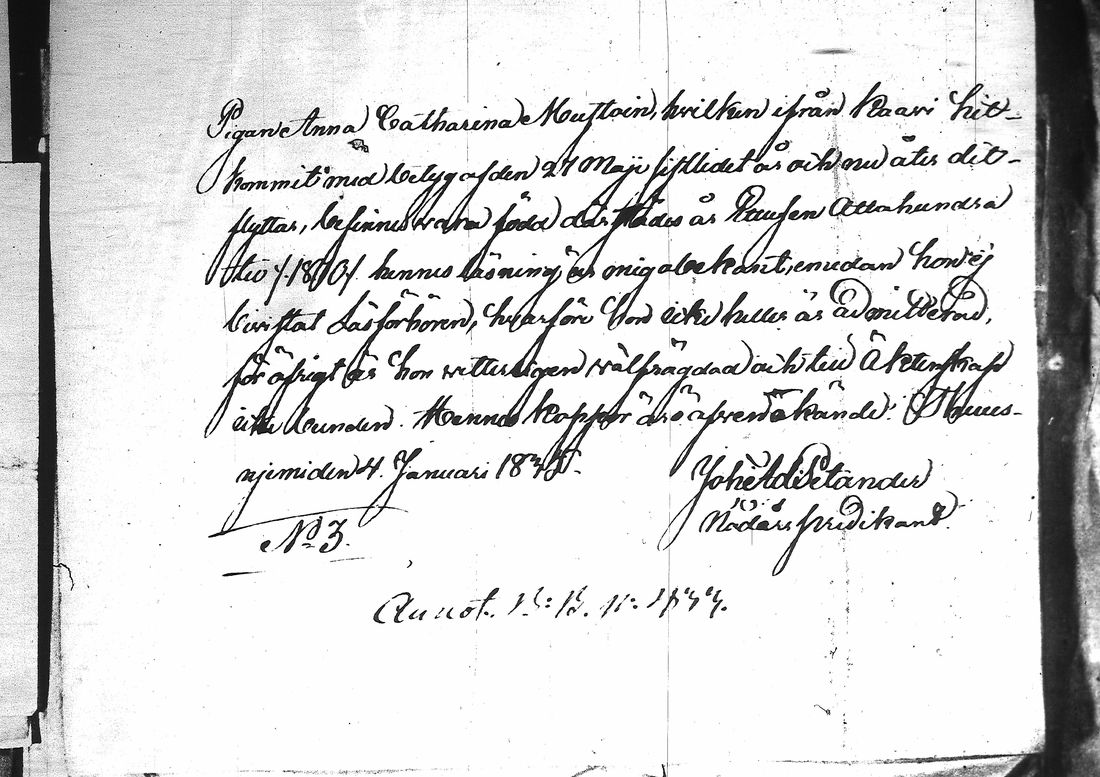 Pigan Anna Catharina Mustoin, hvilken ifrån Kaavi hit-
kommit med betyg af den 27 Maji sistlidet år och nu åter dit-
flyttar, befinnes vara född därstädes år Ettusen Åttahundra
tio /:1810/. hennes läsning är mig obekant, emedan hon ej
bivistat Läsförhören, hvarföre hon icke heller är admitterad,
för öfrigt är hon vitterligen välfrägdad och till Äktenskap
icke bunden. Hennes koppor äro äfven okände.
njemi den 4. Januari 183
Joh: Petander
Nådårs predikant.
No 3.
Annot.